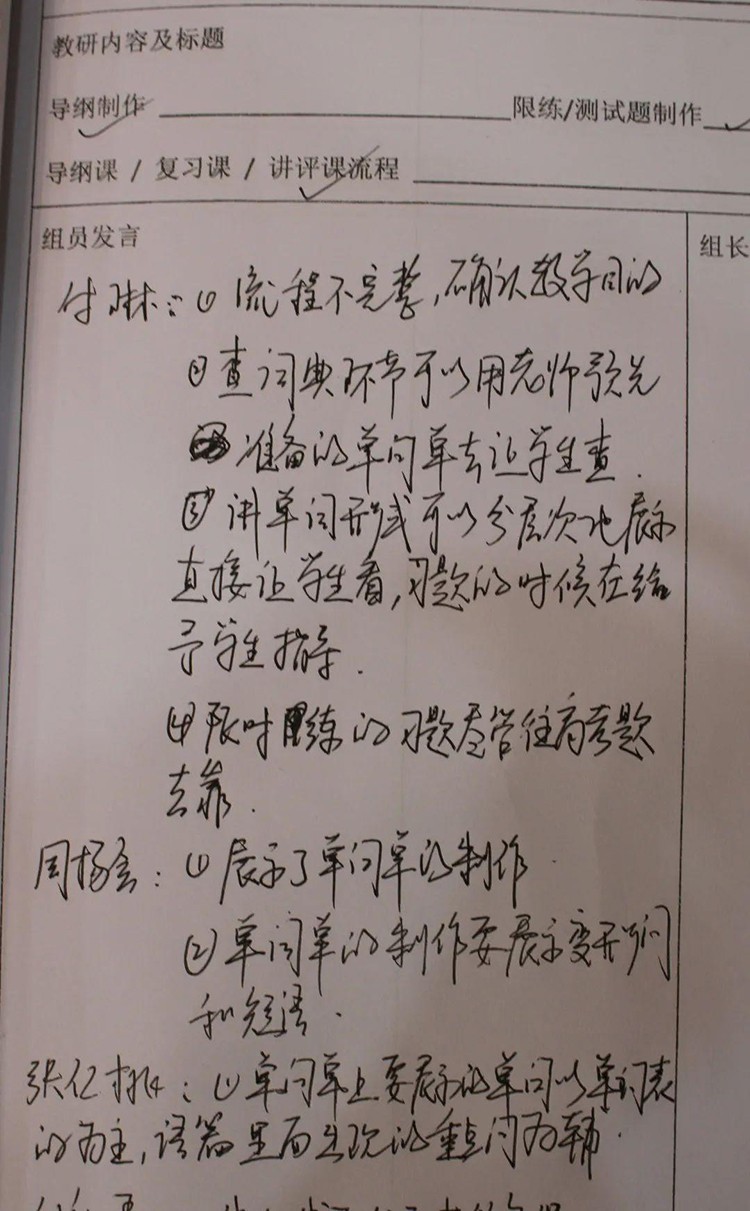 教研内容及标题
导纲制作 限练/测试题制作
导纲课 / 复习课 / 讲评课流程
组员发言 组长
付琳：① 流程不完整，确认教学目的
② 查词典环节可以用老师预先
准备的单词单去让学生查.
③ 讲单词形式可以分层次地展示
直接让学生看，习题的时候在给
予学生指导.
④ 限时练的习题尽管往高考题
去靠.
周杨会：① 展示了单词单的制作.
② 单词单的制作要展示变形词
和短语.
张仁：① 单词单上要展示的单词以单词表
的为主，语篇里面出现的重点词为辅.